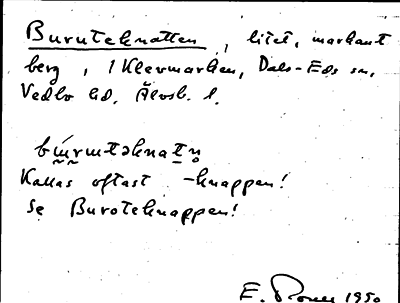 Buruteknatten, litet, markant
berg, i Klevmarken, Dals-Eds sn,
Vedbo hd. Älvsb. l.
bɯ́rɯtəknatn̥
Kallas oftast -knappen!
Se Buroteknappen!
E. 1950